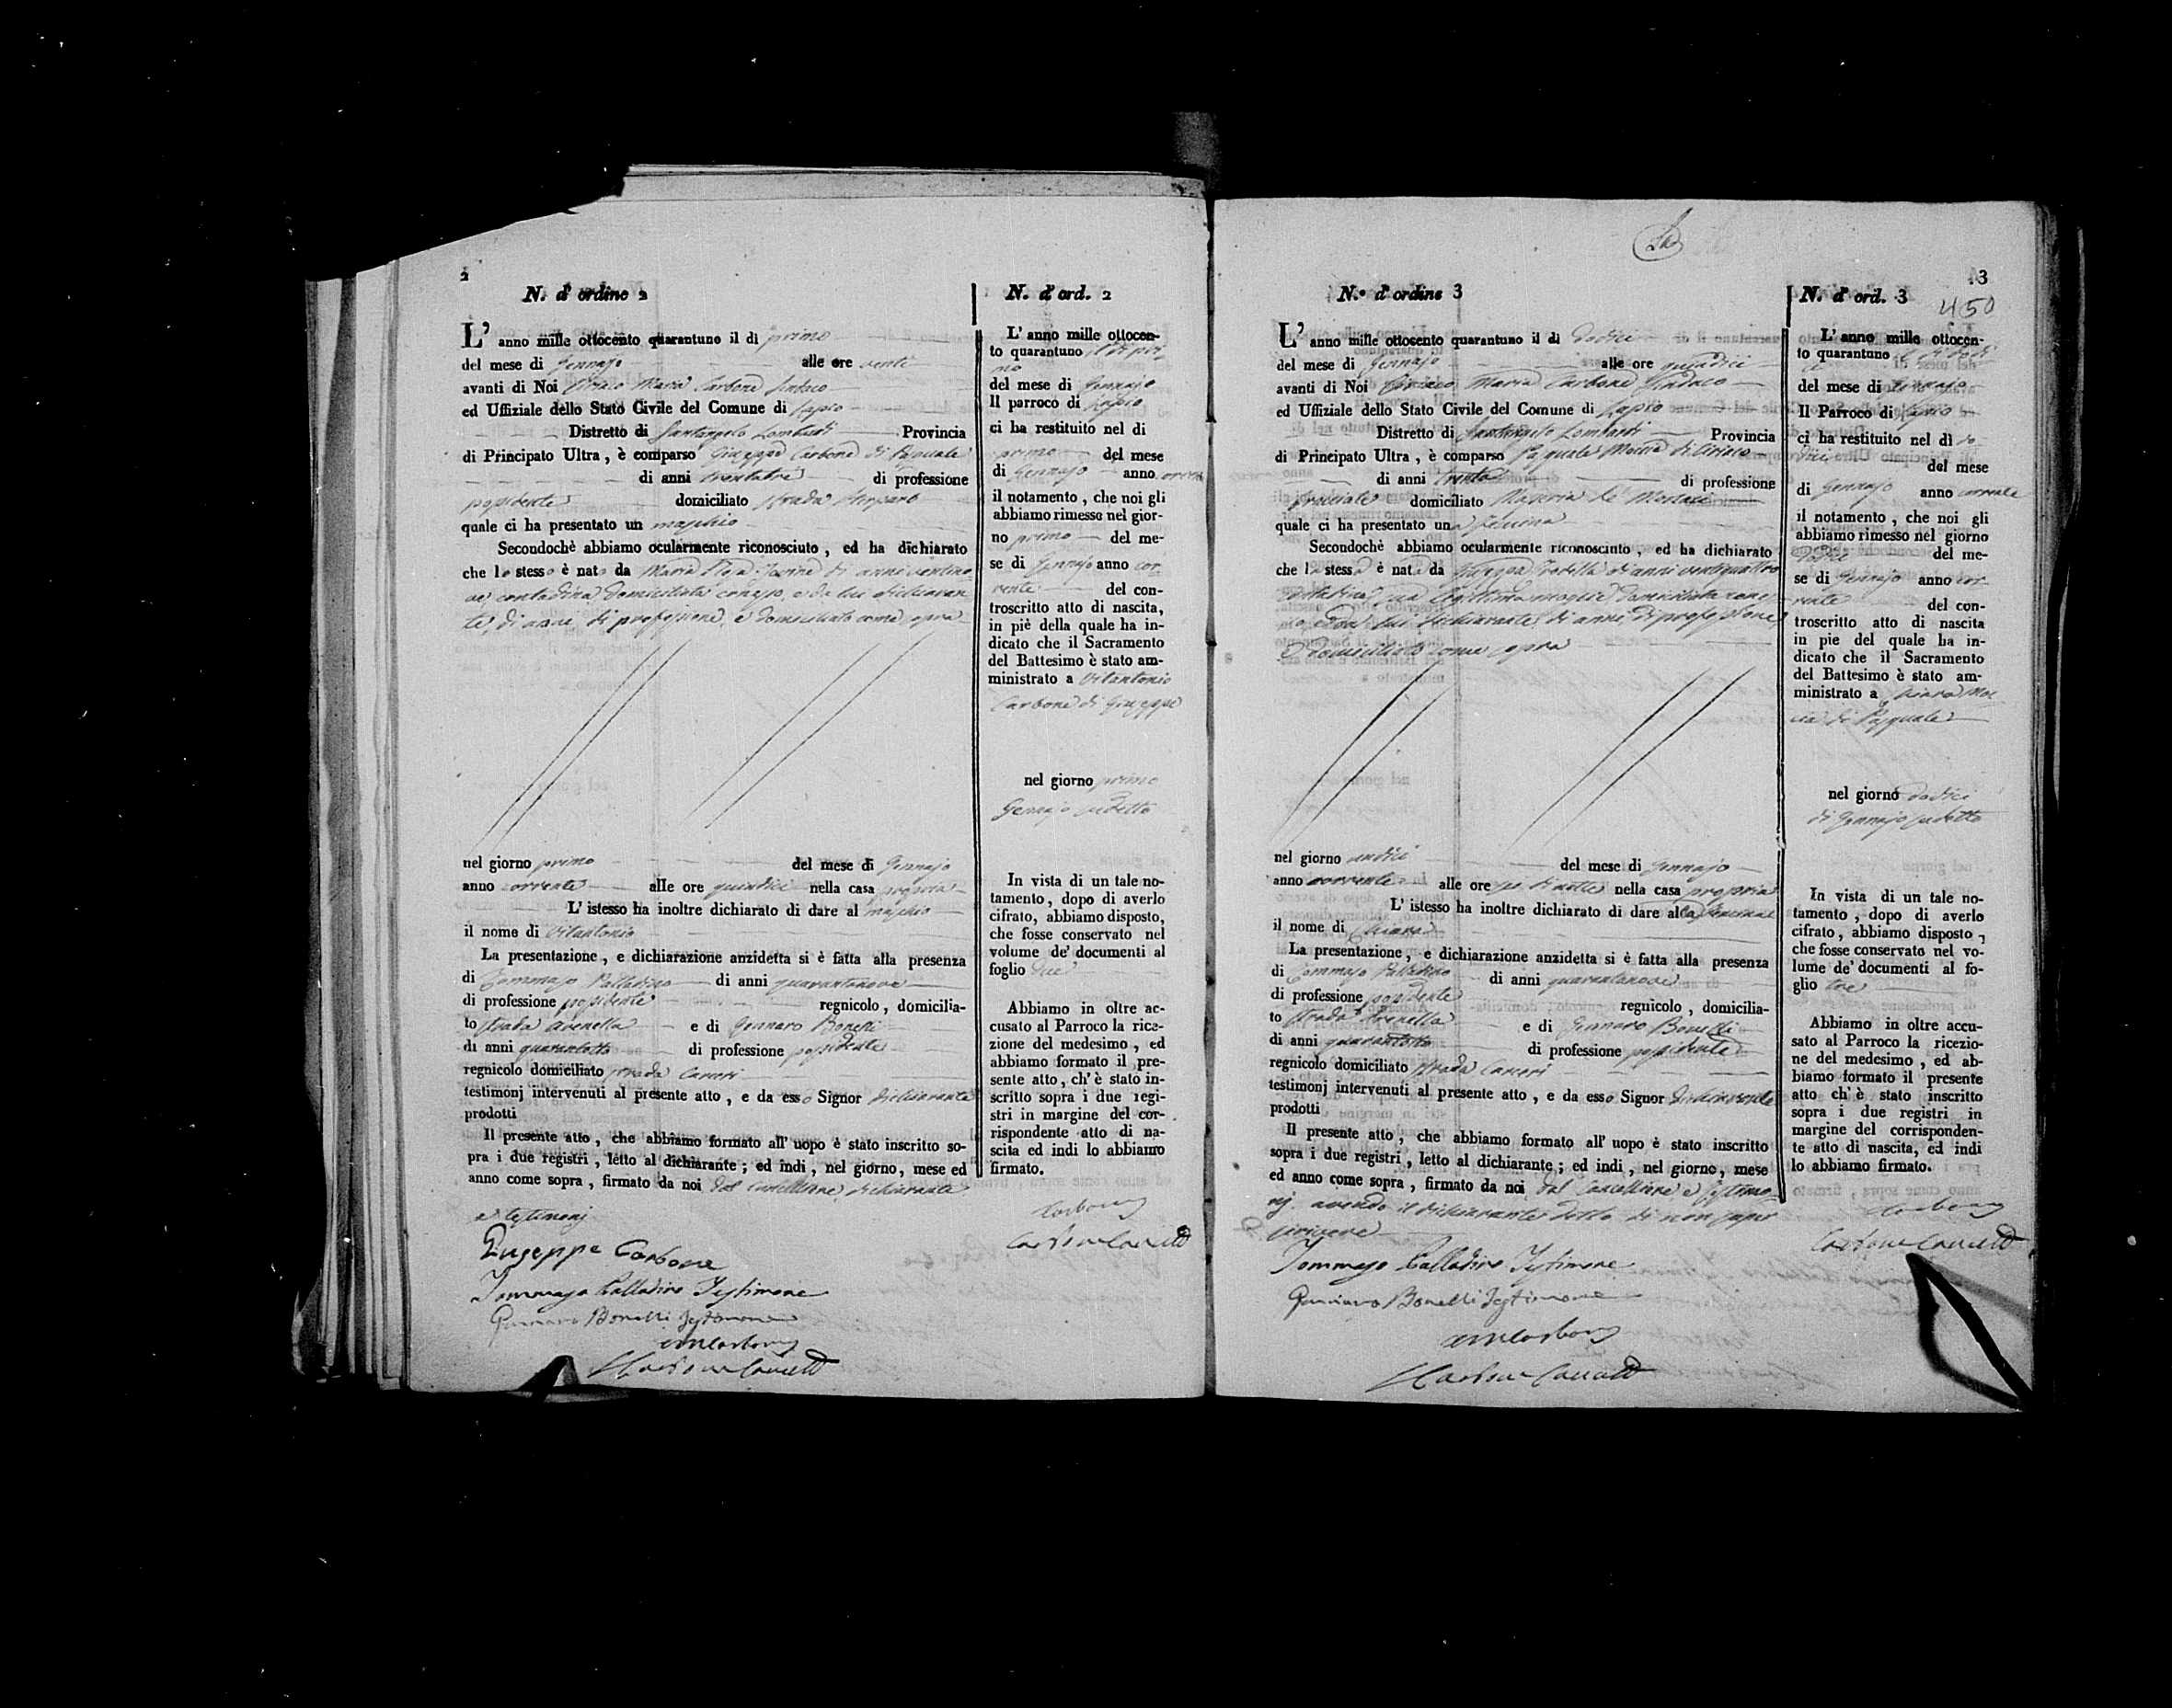 2
N. d' ordine 2
L' anno mille ottocento quarantuno il dì primo
del mese di Gennajo alle ore venti
avanti di Noi Ciriaco Maria Carbone Sindaco
ed Uffiziale dello Stato Civile del Comune di Lapio
Distretto di Santangelo Lombardi Provincia
di Principato Ultra, è comparso Giuseppe Carbone di Pasquale
di anni trentatre di professione
possidente domiciliato strada
quale ci ha presentato un maschio
Secondochè abbiamo ocularmente riconosciuto, ed ha dichiarato
che lo stesso è nato da Maria di anni ventino
ve contadina domiciliata con esso, e da lui dichiaran
te, di anni, di professione, e domiciliato come sopra
nel giorno primo del mese di Gennajo
anno corrente alle ore quindici nella casa propria
L' istesso ha inoltre dichiarato di dare al maschio
il nome di Vitantonio
La presentazione, e dichiarazione anzidetta si è fatta alla presenza
di Tommaso Palladino di anni quarantanove
di professione possidente regnicolo, domicilia-
to strada Arenella e di Gennaro Bonelli
di anni quarantotto di professione possidente
regnicolo domiciliato strada Carceri
testimonj intervenuti al presente atto, e da esso Signor dichiarante
prodotti
Il presente atto, che abbiamo formato all' uopo è stato inscritto so-
pra i due registri, letto al dichiarante; ed indi, nel giorno, mese ed
anno come sopra, firmato da noi dal Cancelliere, dichiarante
e testimonj
Giuseppe Carbone
Tommaso Palladino Testimone
Gennaro Bonelli Testimone
Carbone
N. d' ord. 2
L' anno mille ottocen-
to quarantuno il dì pri-
mo
del mese di Gennajo
Il parroco di Lapio
ci ha restituito nel di
primo del mese
di Gennajo anno corren
il notamento, che noi gli
abbiamo rimesso nel gior-
no primo del me-
se di Gennajo anno cor-
rente del con-
troscritto atto di nascita,
in piè della quale ha in-
dicato che il Sacramento
del Battesimo è stato am-
ministrato a Vitantonio
Carbone di Giuseppe
nel giorno primo
Gennajo sudetto
In vista di un tale no-
tamento, dopo di averlo
cifrato, abbiamo disposto,
che fosse conservato nel
volume de' documenti al
foglio due
Abbiamo in oltre ac-
cusato al Parroco la rice-
zione del medesimo, ed
abbiamo formato il pre-
sente atto, ch' è stato in-
scritto sopra i due regi-
stri in margine del cor-
rispondente atto di na-
scita ed indi lo abbiamo
firmato.
Carbone
3
450
N.º d' ordine 3
L' anno mille ottocento quarantuno il di dodici
del mese di Gennajo alle ore quindici
avanti di Noi Ciriaco Maria Carbone Sindaco
ed Uffiziale dello Stato Civile del Comune di Lapio
Distretto di Santangelo Lombardi Provincia
di Principato Ultra, è comparso Pasquale Moccia di Ciriaco
di anni trenta di professione
domiciliato
quale ci ha presentato una femina
Secondochè abbiamo ocularmente riconosciuto, ed ha dichiarato
che la stessa è nata da Giuseppa di anni ventiquattro
sua legittima moglie domiciliata con es
so, e da lui dichiarante, di anni, di professione
e domiciliato come sopra
nel giorno undici del mese di Gennajo
anno corrente alle ore sei di notte nella casa propria
L' istesso ha inoltre dichiarato di dare alla femina
il nome di Chiara
La presentazione, e dichiarazione anzidetta si è fatta alla presenza
di Tommaso Palladino di anni quarantanove
di professione possidente regnicolo, domicilia-
to strada Arenella e di Gennaro Bonelli
di anni quarantotto di professione possidente
regnicolo domiciliato strada Carceri
testimonj intervenuti al presente atto, e da esso Signor dichiarante
prodotti
Il presente atto, che abbiamo formato all' uopo è stato inscritto
sopra i due registri, letto al dichiarante; ed indi, nel giorno, mese
ed anno come sopra, firmato da noi dal Cancelliere e testimo-
nj avendo il dichiarante detto di non saper
scrivere
Tommaso Palladino Testimone
Gennaro Bonelli Testimone
Carbone
N. d' ord. 3
L' anno mille ottocen-
to quarantuno il dì dodi
ci
del mese di Gennajo
Il Parroco di Lapio
ci ha restituito nel dì do-
dici del mese
di Gennajo anno corrente
il notamento, che noi gli
abbiamo rimesso nel giorno
dodici del me-
se di Gennajo anno cor-
rente del con-
troscritto atto di nascita
in pie del quale ha in-
dicato che il Sacramento
del Battesimo è stato am-
ministrato a Chiara Moc
cia di Pasquale
nel giorno dodici
di Gennajo sudetto
In vista di un tale no-
tamento, dopo di averlo
cifrato, abbiamo disposto,
che fosse conservato nel vo-
lume de' documenti al fo-
glio tre
Abbiamo in oltre accu-
sato al Parroco la ricezio-
ne del medesimo, ed ab-
biamo formato il presente
atto ch' è stato inscritto
sopra i due registri in
margine del corrisponden-
te atto di nascita, ed indi
lo abbiamo firmato.
Carbone